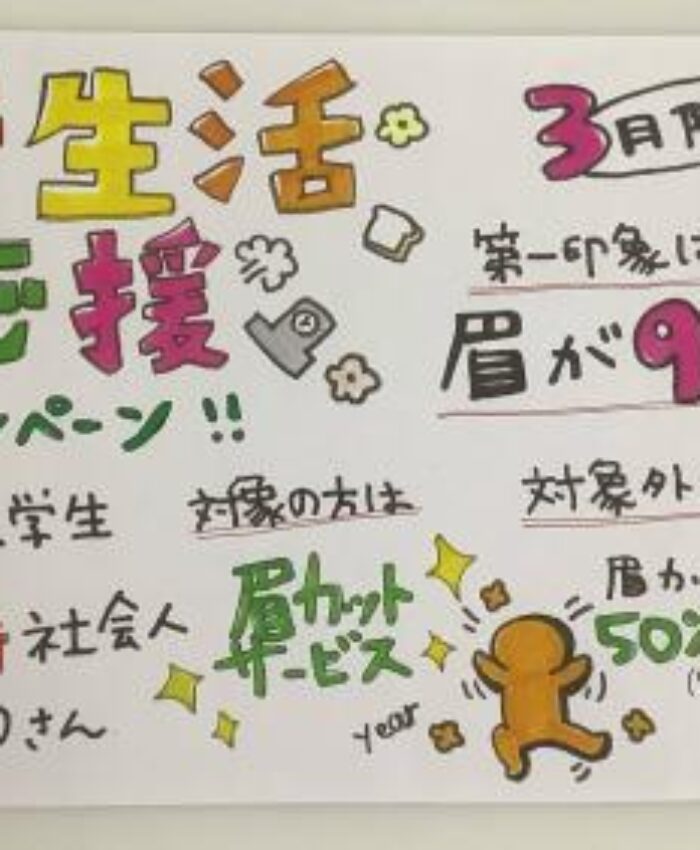 生活
応援
ンペーン!!
学生
社会人
さん
対象の方は
眉カット
サービス
year
3月限
第一印象は
眉が9
対象外
眉カッ
50%